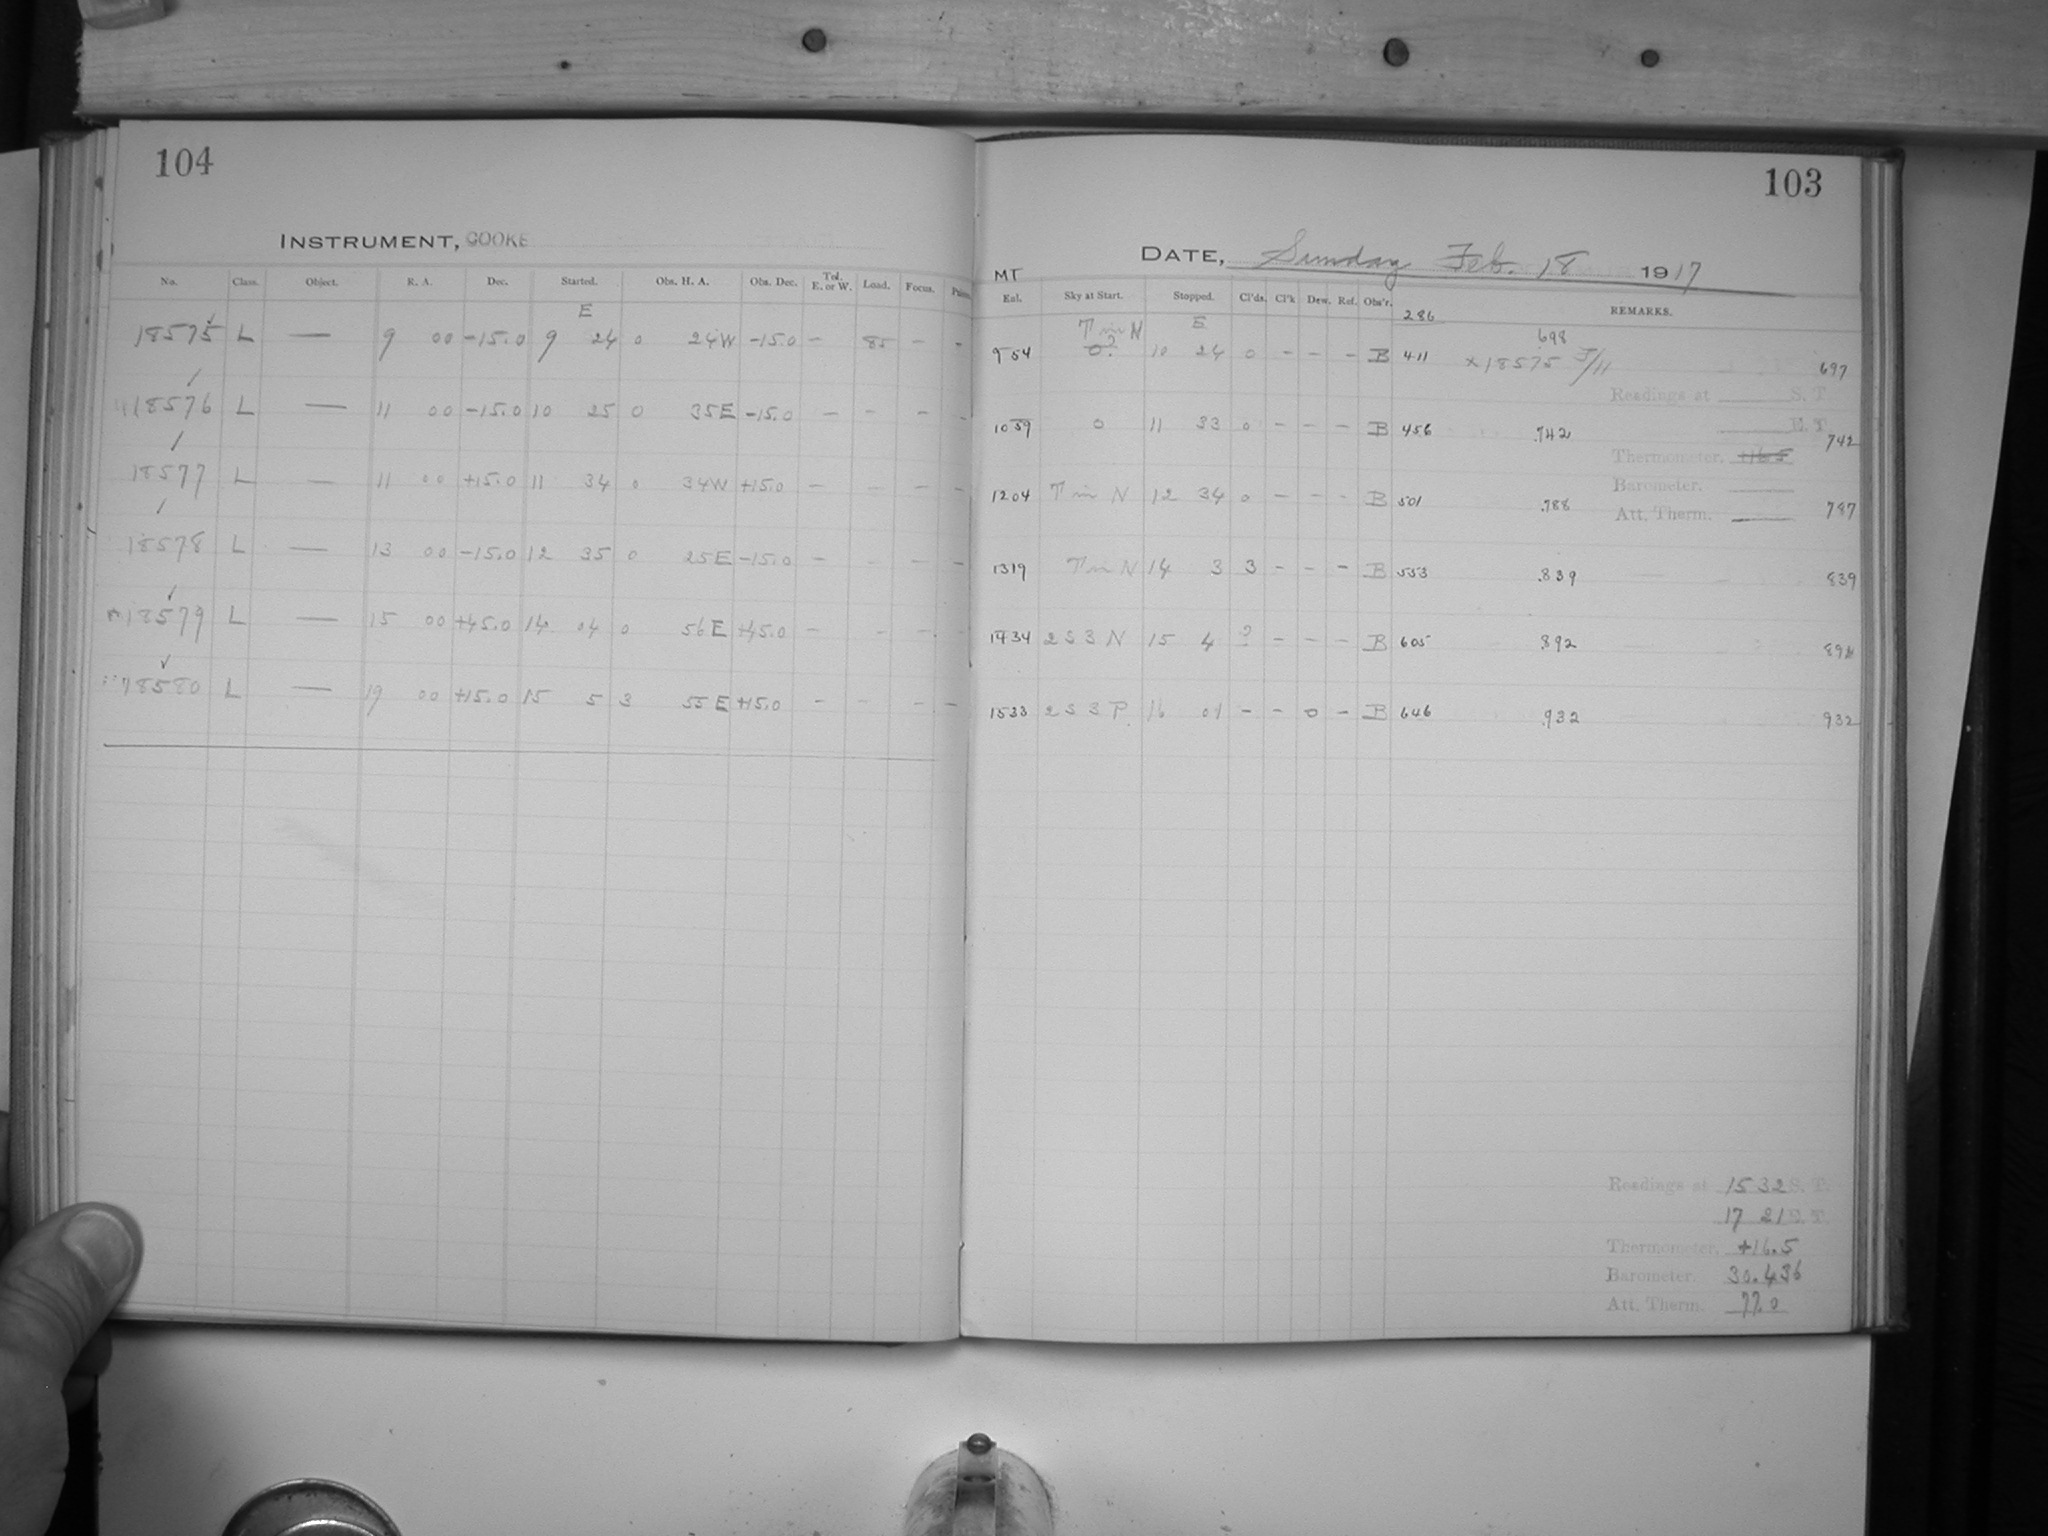 104
INSTRUMENT, COOKE
No. Class. Object. R. A. Dec. Started. Obs. H. A. Obs. Dec. Tel. E. or W. Load. Focus.
E
18575 L — 9 00 -15.0 9 24 0 24W -15.0 - 85 - -
18576 L — 11 00 -15.0 10 25 0 35E -15.0 - - - -
18577 L — 11 00 +15.0 11 34 0 34W +15.0 - - - -
18578 L — 13 00 -15.0 12 35 0 25E -15.0 - - - -
18579 L — 15 00 +45.0 14 04 0 56E +45.0 - - - -
18580 L — 19 00 +15.0 15 5 3 55E +15.0 - - - -
103
DATE, Sunday Feb. 18 1917
MT
Sky at Start. Stopped. Cl'ds. Cl'k Dew. Ref. Obs'r. 286 REMARKS.
T in N E 698
9 54 0? 10 24 0 - - - B 411 x 18575 J/11 697
Readings at S. T.
10 59 0 11 33 0 - - - B 456 .742 E. T. 742
Thermometer. +16.5
Barometer.
12 04 T in N 12 34 0 - - - B 501 .788 Att. Therm. 787
13 19 T in N 14 3 3 - - - B 553 .839 839
14 34 2 S 3 N 15 4 ? - - - B 605 .892
15 33 2 S 3 P. 16 01 - - 0 - B 646 .932 932
Readings at 15 32 S. T.
17 21 E. T.
Thermometer. +16.5
Barometer. 30.436
Att. Therm. 77.0